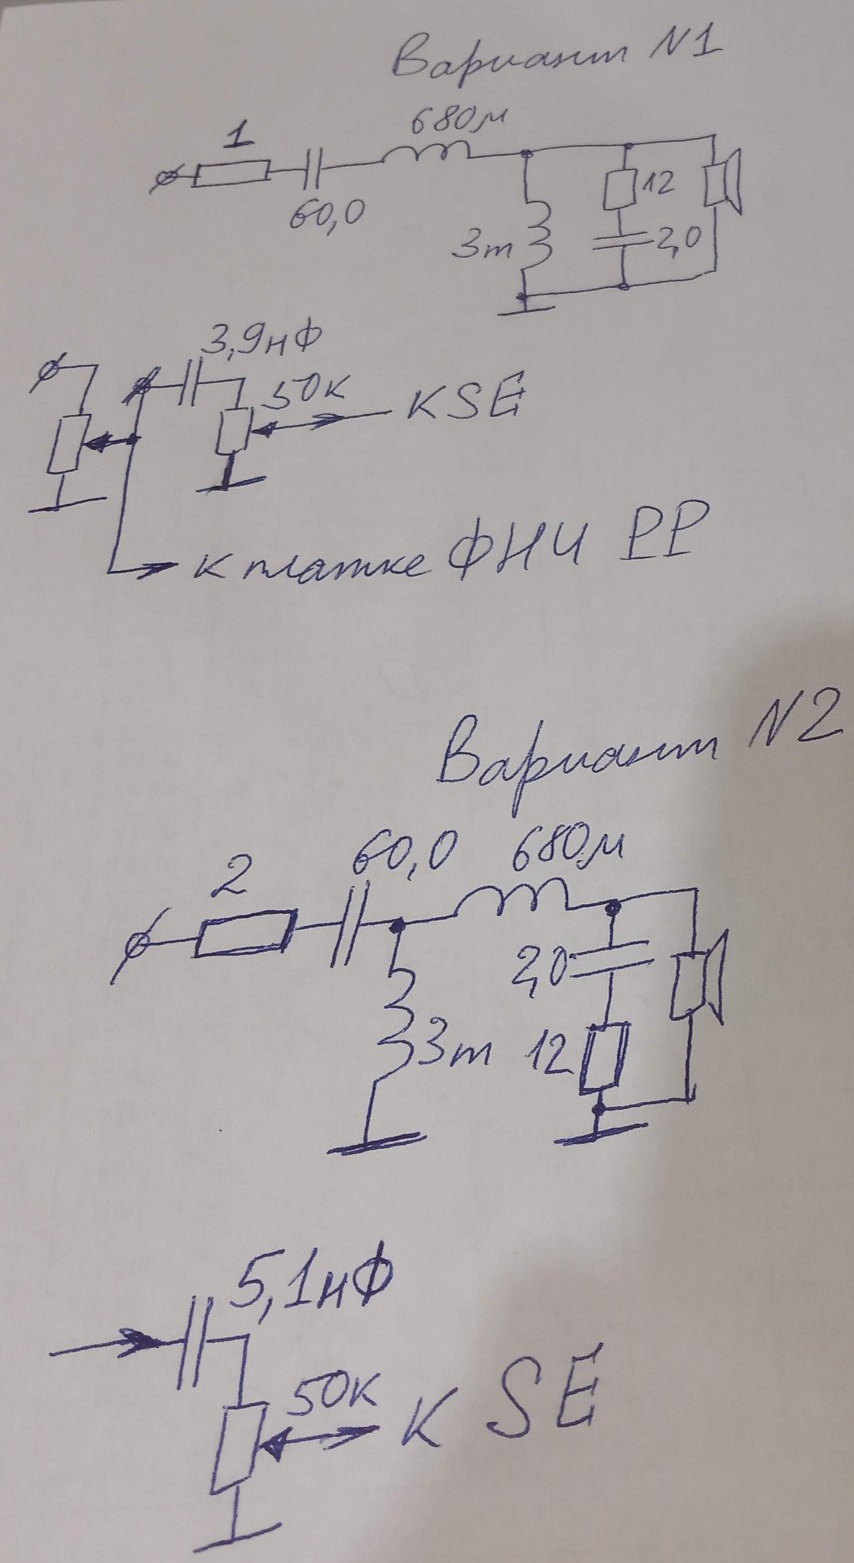 Вариант N1
680м
1
60,0
12
3m
2,0
3,9нФ
50к
К SE
к платке ФНЧ РР
Вариант N2
60,0
680м
2
2,0
3m
12
5,1нФ
50к
к SE